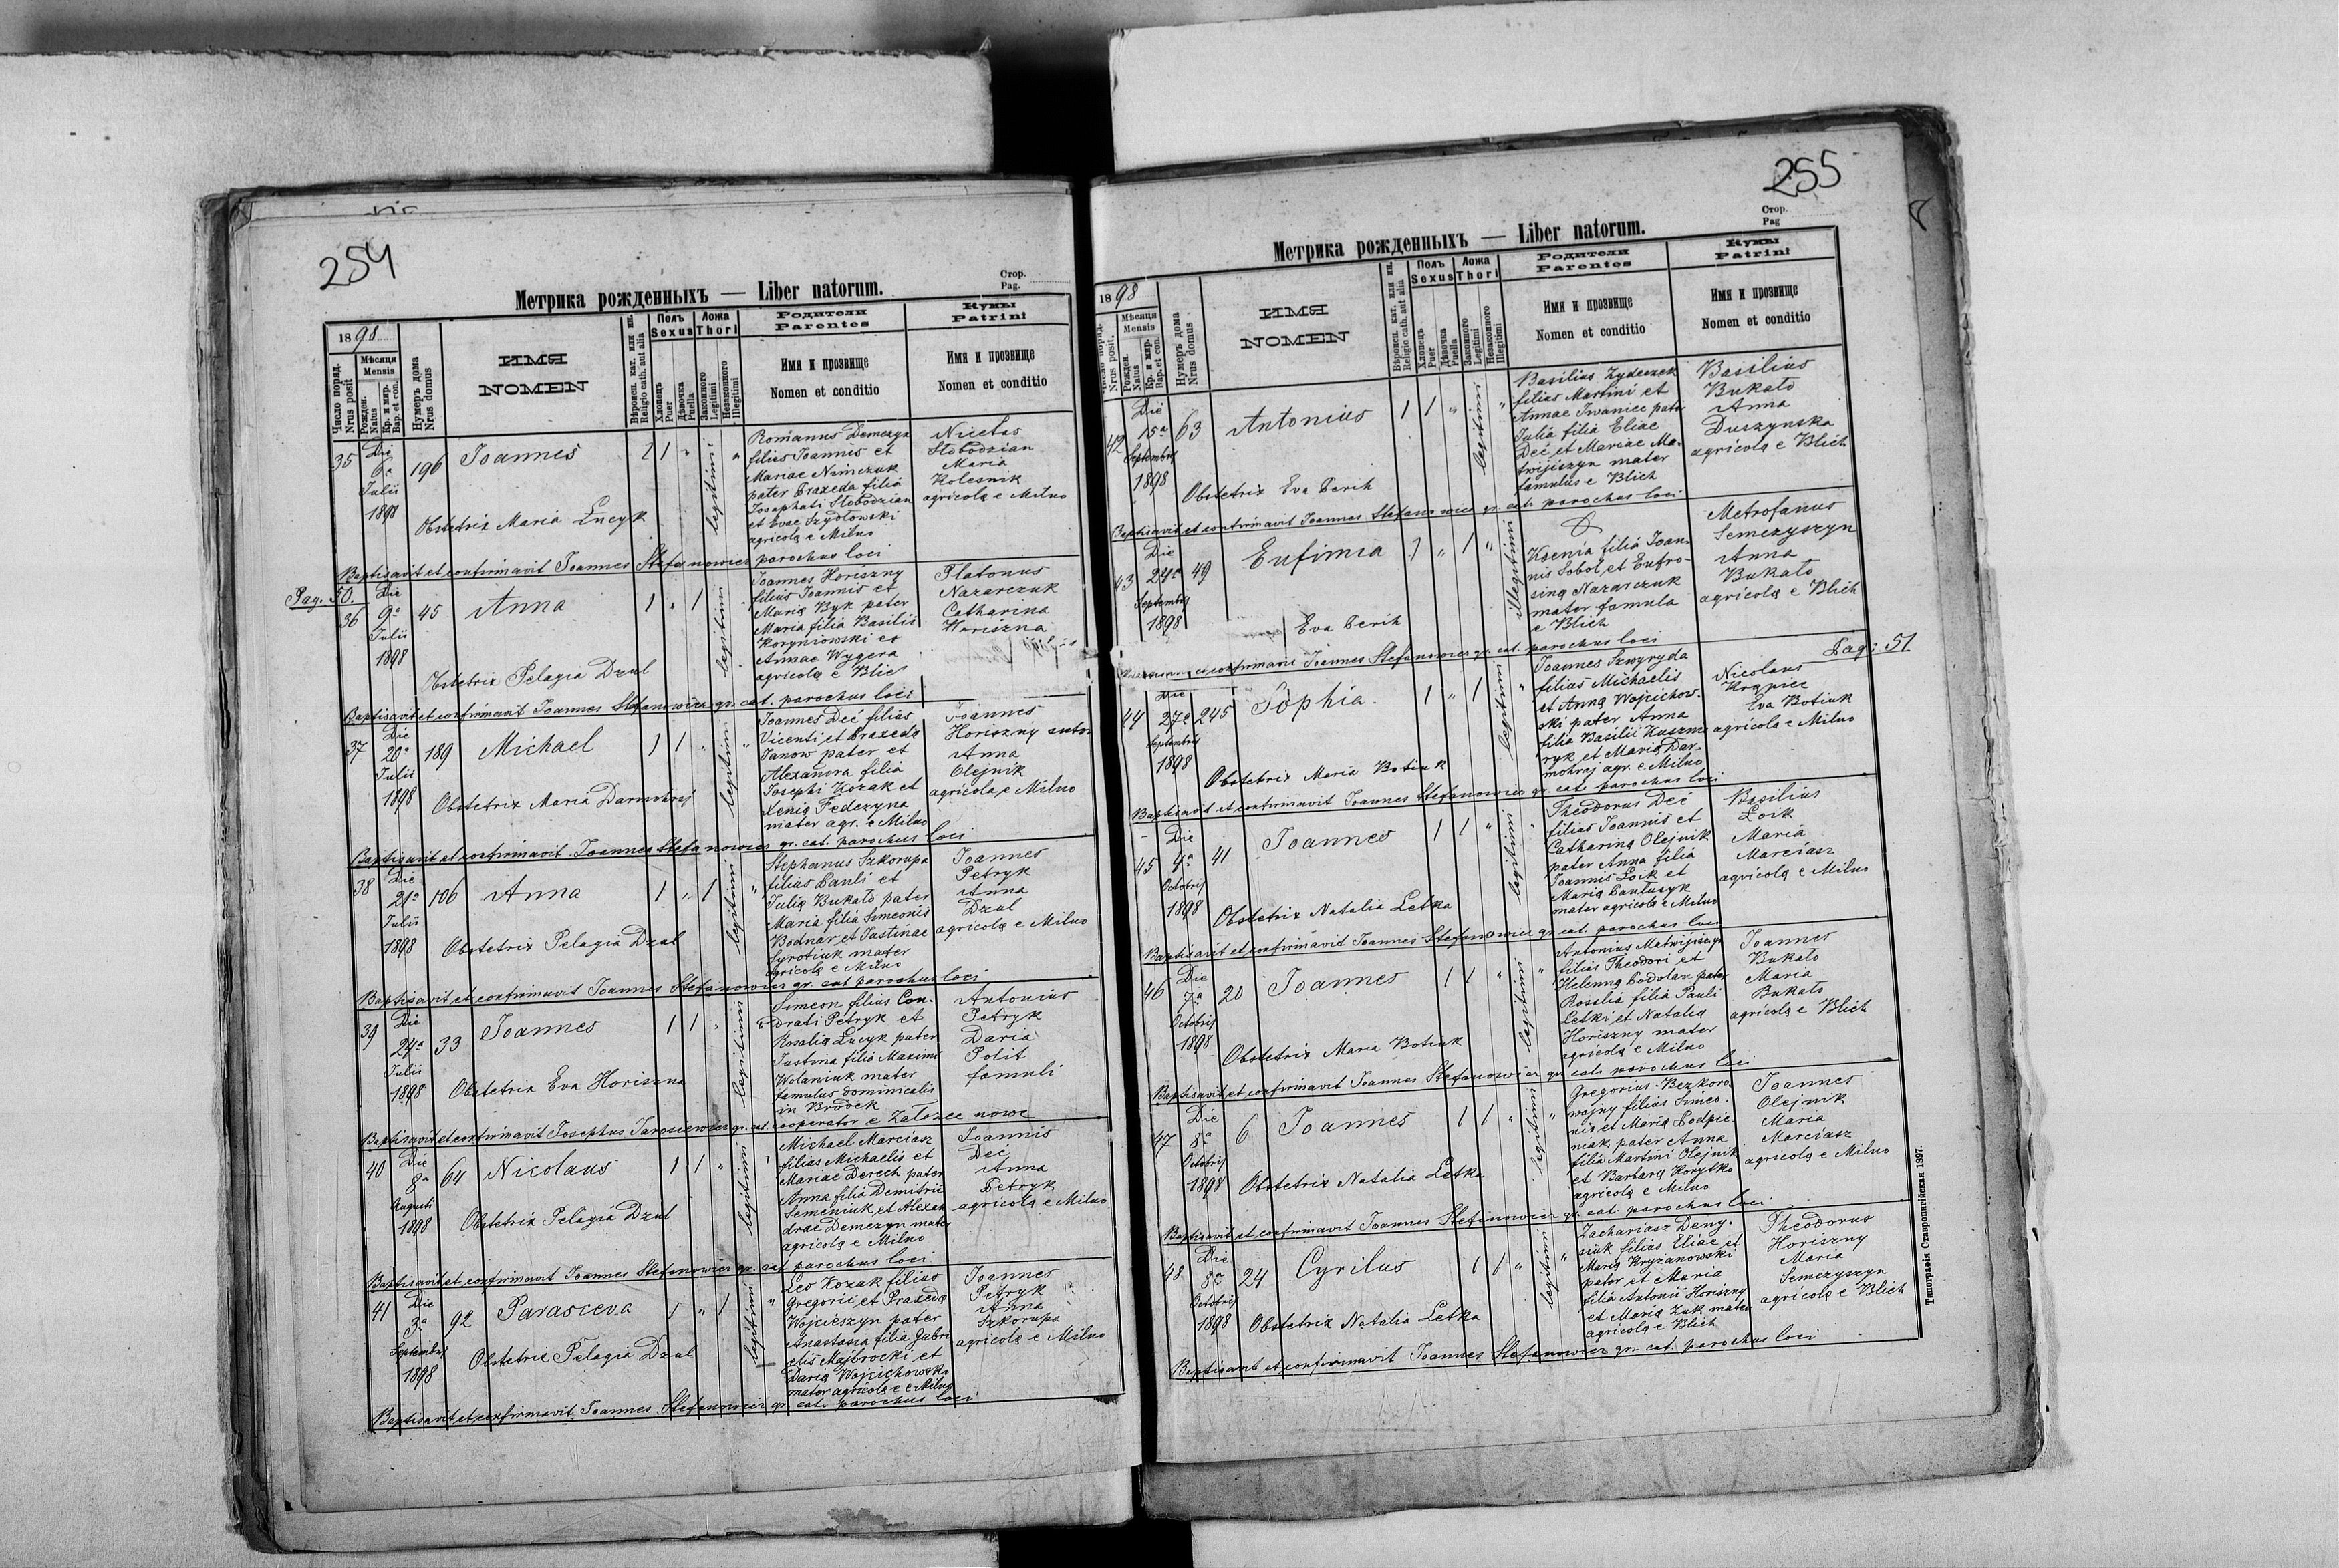 254
Стор.
Pag.
Метрика рожденныхъ — Liber natorum.
1898
Число поряд.
Nrus posit
Мѣсяця
Mensis
Рожден.
Natus
Кр. и мѵр.
Bap. et con.
Нумеръ дома
Nrus domus
ИМЯ
NOMEN
Вѣроисп. кат. или ин.
Religio cath. aut alia
Полъ
Sexus
Хлопець
Puer
Дѣвочка
Puella
Ложа
Thori
Законного
Legitimi
Незаконного
Illegitimi
Родители
Parentes
Имя и прозвище
Nomen et conditio
Кумы
Patrini
Имя и прозвище
Nomen et conditio
35
Die
6a
Julii
1898
196
Joannes
1 1 "
legitimi
"
Romanus Demczyn
filius Joannis et
Mariae Nimczuk
pater Praxeda filia
Josaphati Słobodzian
et Evae Szydłowski
agricolą e Milno
Nicetas
Słobodzian
Maria
Kolesnik
agricolą e Milno
Obstetrix Maria Łucyk
Baptisavit et confirmavit Joannes Stefanowicz parochus loci
Pag. 50.
36
Die
9a
Julii
1898
45
Anna
1 " 1
legitimi
Joannes Horiszny
filius Joannis et
Marią Byk pater
Maria filia Basilii
Koryniowski et
Annae Wygera
agricolą e Blic
Platonus
Nazarczuk
Catharina
Horiszna
Obstetrix Pelagia Dzul
Baptisavit et confirmavit Joannes Stefanowicz gr. cat. parochus loci
37
Die
20a
Julii
1898
189
Michael
1 1 "
legitimi
"
Joannes Deć filius
Vicenti et Praxedą
Janow pater et
Alexandra filia
Josephi Kozak et
Xenią Fedczyna
mater agr. e Milno
Joannes
Horiszny
Anna
Olejnik
agricolą e Milno
Obstetrix Maria Darmohraj
Baptisavit et confirmavit Joannes Stefanowicz gr. cat. parochus loci
38
Die
21a
Julii
1898
106
Anna
1 " 1
legitimi
"
Stephanus Szkorupa
filius Pauli et
Julią Bukało pater
Maria filia Simeonis
Bodnar et Justinae
Syrotiuk mater
agricolą e Milno
Joannes
Petryk
Anna
Dzul
agricolą e Milno
Obstetrix Pelagia Dzul
Baptisavit et confirmavit Joannes Stefanowicz gr. cat parochus loci
39
Die
24a
Julii
1898
33
Joannes
1 1 "
legitimi
Simeon filius Con-
drati Petryk et
Rosalią Łucyk pater
Justina filia Maximi
Wolaniuk mater
famulus dominicalis
in Brodek
Antonius
Petryk
Daria
Polit
famuli
Obstetrix Eva Horiszna
Baptisavit et confirmavit Josephus Jarosiewicz gr. cat. cooperator e Załozce nowe
40
Die
8a
Augusti
1898
64
Nicolaus
1 1 "
legitimi
Michael Marciasz
filius Michaelis et
Mariae Derech pater
Anna filia Demitrii
Semeniuk et Alexan
drae Demczyn mater
agricolą e Milno
Joannis
Deć
Anna
Petryk
agricolą e Milno
Obstetrix Pelagia Dzul
Baptisavit et confirmavit Joannes Stefanowicz gr. cat parochus loci
41
Die
3a
Septembris
1898
92
Parasceva
1 " 1
legitimi
"
Leo Kozak filius
Gregorii et Praxedą
Wojcieszyn pater
Anastasia filia Gabri
elis Majbrocki et
Darią Wojcichowski
mater agricolą e Milno
Joannes
Petryk
Anna
Szkorupa
agricolą e Milno
Obstetrix Pelagia Dzul
Baptisavit et confirmavit Joannes Stefanowicz gr. cat. parochus loci
255
Стор.
Pag
Метрика рожденныхъ — Liber natorum.
1898
Nrus posit.
Мѣсяця
Mensis
Рожден.
Natus
Кр. и мѵр.
Bap. et con.
Нумеръ дома
Nrus domus
ИМЯ
NOMEN
Вѣроисп. кат. или ин.
Religio cath. aut alia
Полъ
Sexus
Хлопець
Puer
Дѣвочка
Puella
Ложа
Thori
Законного
Legitimi
Незаконного
Illegitimi
Родители
Parentes
Имя и прозвище
Nomen et conditio
Кумы
Patrini
Имя и прозвище
Nomen et conditio
42
Die
15a
Septembris
1898
63
Antonius
1 1 "
legitimi
"
Basilius Zydeczek
filius Martini et
Annae Iwaniec pater
Julia filia Eliae
Deć et Mariae Ma-
twijiszyn mater
famulus e Blich
Basilius
Bukało
Anna
Duszynska
agricolą e Blich
Obstetrix Eva Perih
Baptisavit et confirmavit Joannes Stefanowicz gr. cat. parochus loci
43
Die
24a
Septembris
1898
49
Eufimia
1 " 1 "
illegitimi
Ksenia filia Joan-
nis Sobol et Eufro-
siną Nazarczuk
mater famula
e Blich
Metrofanus
Semczyszyn
Anna
Bukało
agricolą e Blich
Eva Perih
confirmavit Joannes Stefanowicz gr. cat. parochus loci
Pag: 51
44
Die
27a
Septembris
1898
245
Sophia
1 " 1
legitimi
"
Joannes Szwyryda
filius Michaelis
et Anną Wojcichow-
ski pater Anna
filia Basilii Kuszni
ryk et Marią Dar-
mohraj agr. e Milno
Nicolaus
Krąpiec
Eva Botiuk
agricolą e Milno
Obstetrix Maria Botiuk
Baptisavit et confirmavit Joannes Stefanowicz gr. cat. parochus loci
45
Die
4a
Octobris
1898
41
Joannes
1 1 "
legitimi
Theodorus Deć
filius Joannis et
Catharina Olejnik
pater Anna filia
Joannis Łoik et
Marią Pawłusyk
mater agricolą e Milno
Basilius
Łoik
Maria
Marciasz
agricolą e Milno
Obstetrix Natalia Letka
Baptisavit et confirmavit Joannes Stefanowicz gr. cat. parochus loci
46
Die
7a
Octobris
1898
20
Joannes
1 1 "
legitimi
"
Antonius Matwijiszyn
filius Theodori et
Helenną Podolan pater
Rosalia filia Pauli
Letki et Natalią
Horiszny mater
agricolą e Milno
Joannes
Bukało
Maria
Bukało
agricolą e Blich
Obstetrix Maria Botiuk
Baptisavit et confirmavit Joannes Stefanowicz gr. cat. parochus loci
47
Die
8a
Octobris
1898
6
Joannes
1 1 "
legitimi
"
Gregorius Bezkoro-
wajny filius Simeo-
nis et Marią Podpie
niak pater Anna
filia Martini Olejnik
et Barbarą Korytko
agricolą e Milno
Joannes
Olejnik
Maria
Marciasz
agricolą e Milno
Obstetrix Natalia Letka
Baptisavit et confirmavit Joannes Stefanowicz gr. cat. parochus loci
48
Die
8a
Octobris
1898
24
Cyrilus
1 1 "
legitimi
"
Zachariasz Deny-
siuk filius Eliae et
Marią Kryżanowski
pater et Maria
filia Antonii Horiszny
et Marią Zuk mater
agricolą e Blich
Theodorus
Horiszny
Maria
Semczyszyn
agricolą e Blich
Obstetrix Natalia Letka
Baptisavit et confirmavit Joannes Stefanowicz gr. cat. parochus loci
Типографія Ставропигійская 1897.